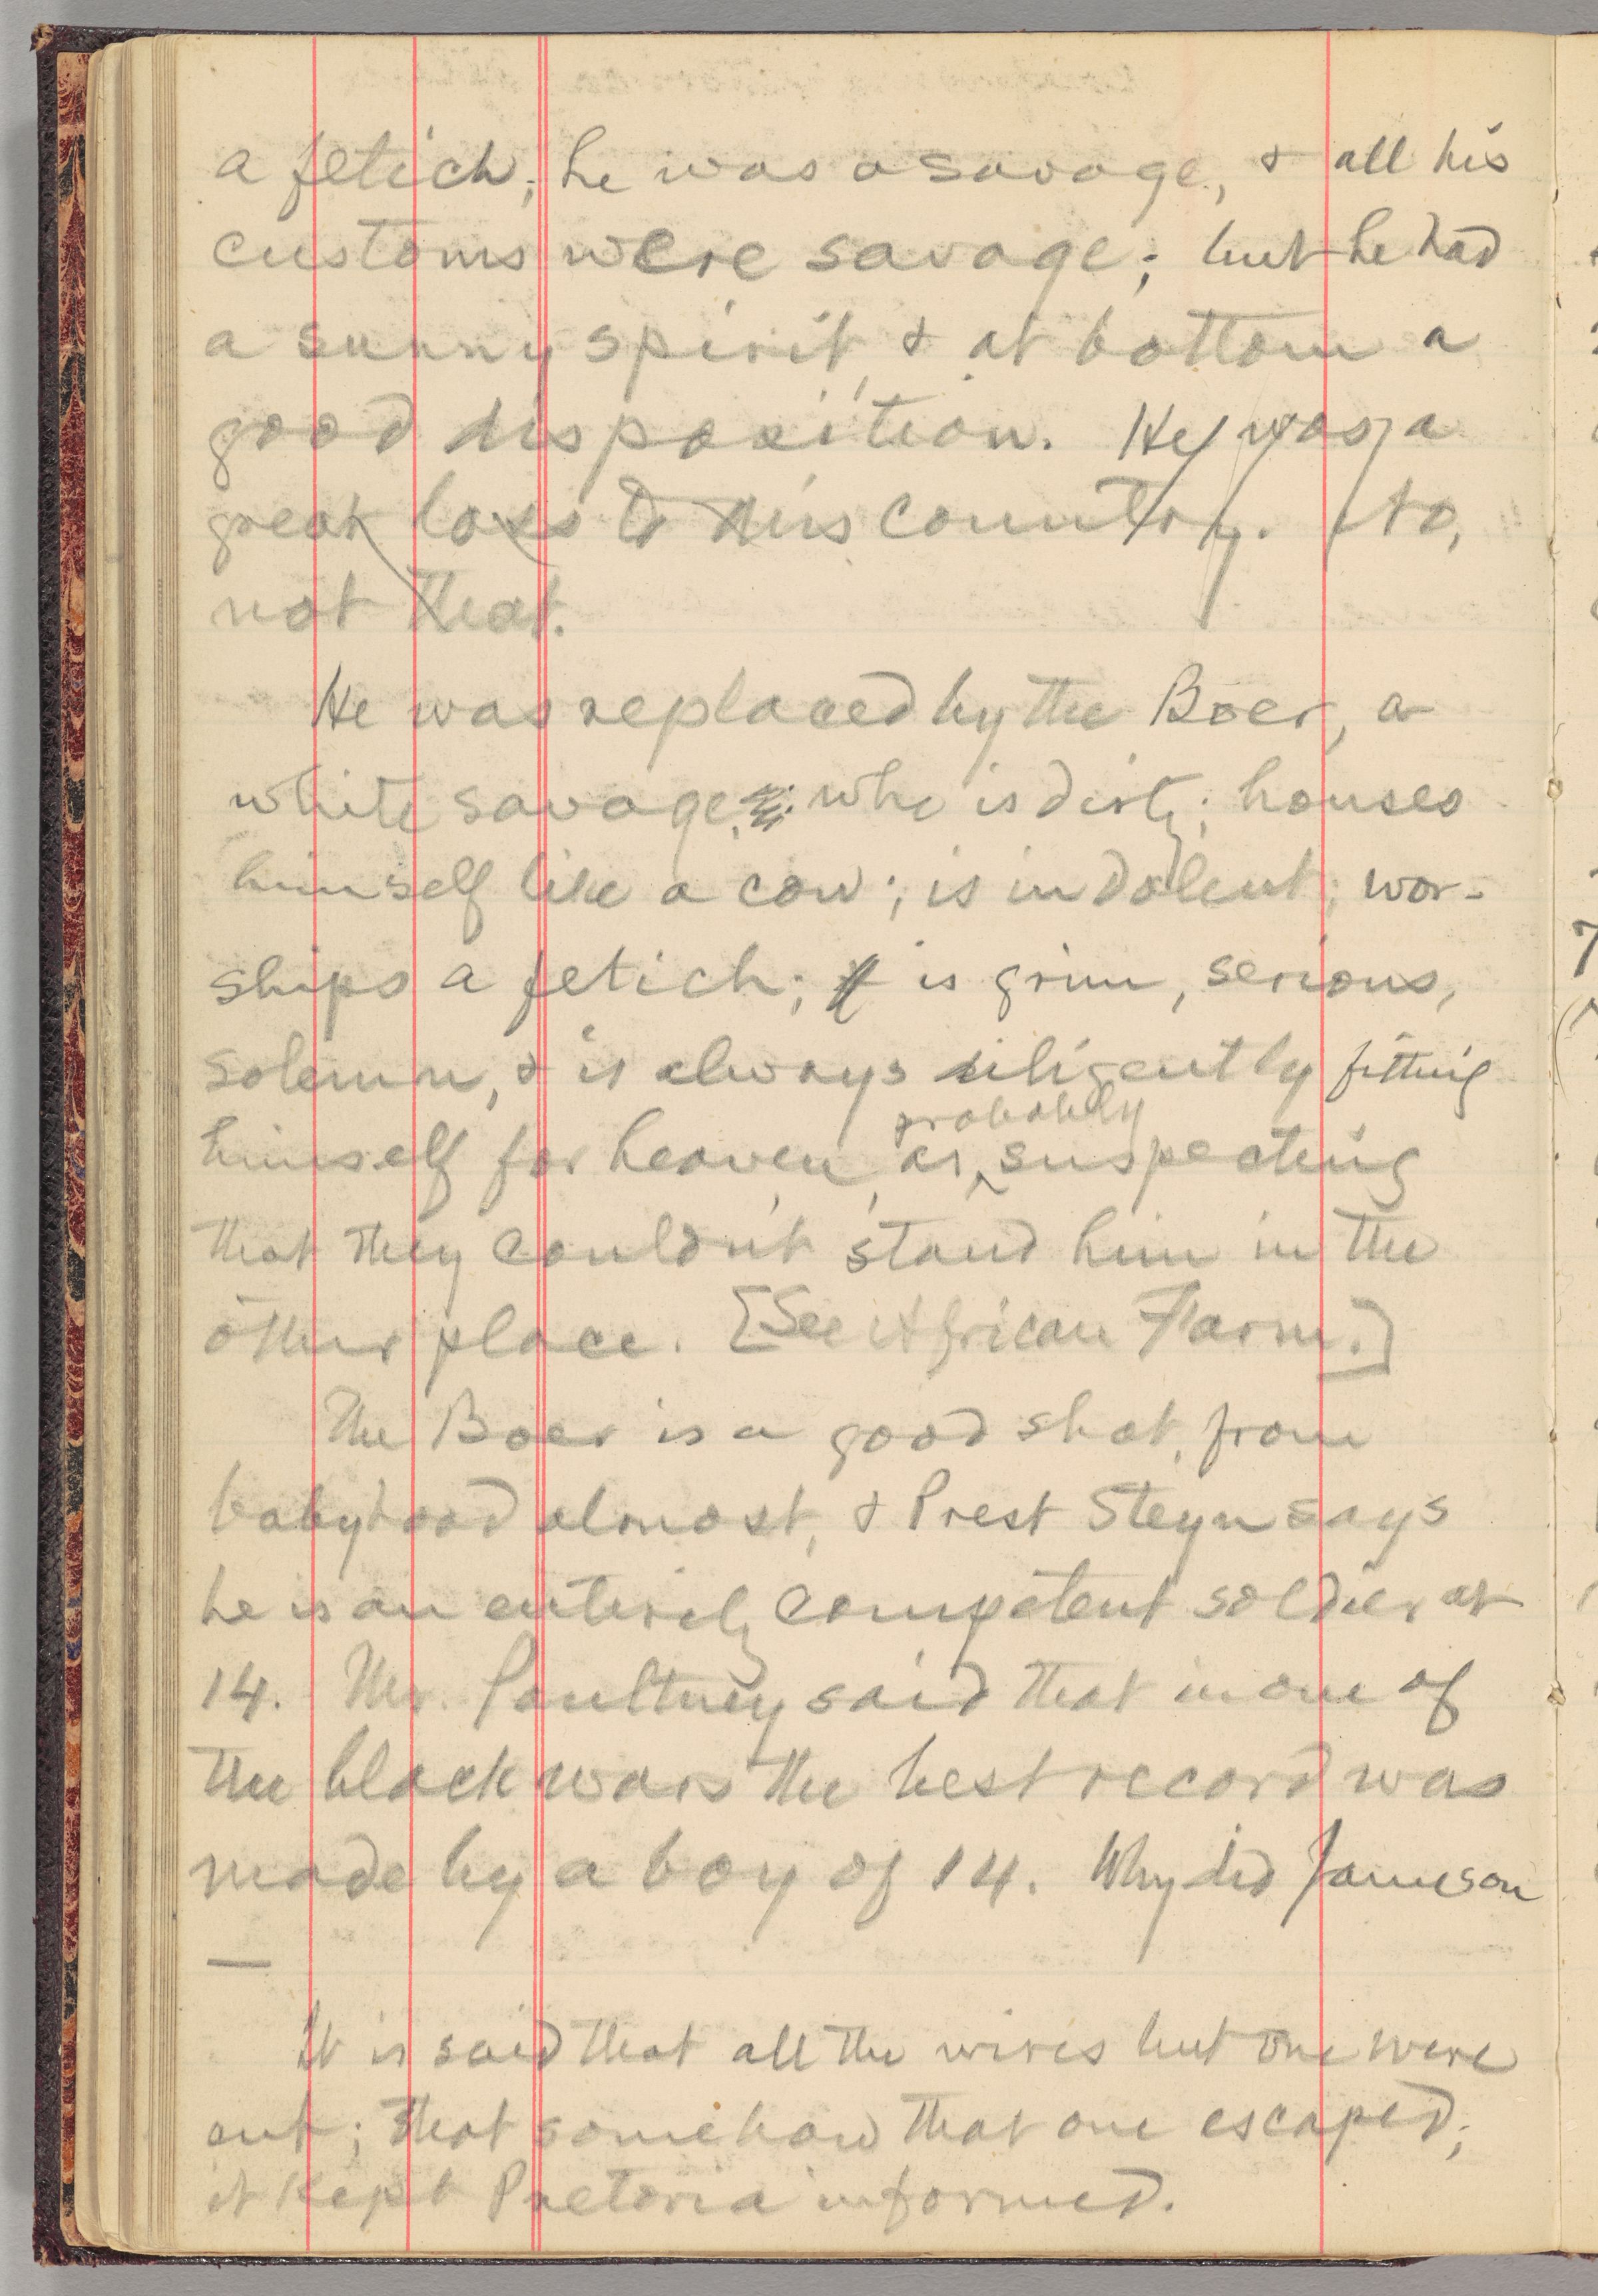 a fetich; he was a savage, & all his
customs were savage; but he had
a sunny spirit, & at bottom a
good disposition. He was a
great loss to this country. No,
not that.
He was replaced by the Boer, a
white savage, who is dirty; houses
himself like a cow; is indolent; wor-
ships a fetich; is grim, serious,
solemn, & is always diligently fitting
himself for heaven, as, probably suspecting
that they couldn't stand him in the
other place. [See African Farm.]
The Boer is a good shot, from
babyhood almost, & Prest Steyn says
he is an entirely competent soldier at
14. Mr. Poultney said that in one of
the black wars the best record was
made by a boy of 14. Why did Jameson
—
It is said that all the wires but one were
cut; that somehow that one escaped;
it kept Pretoria informed.